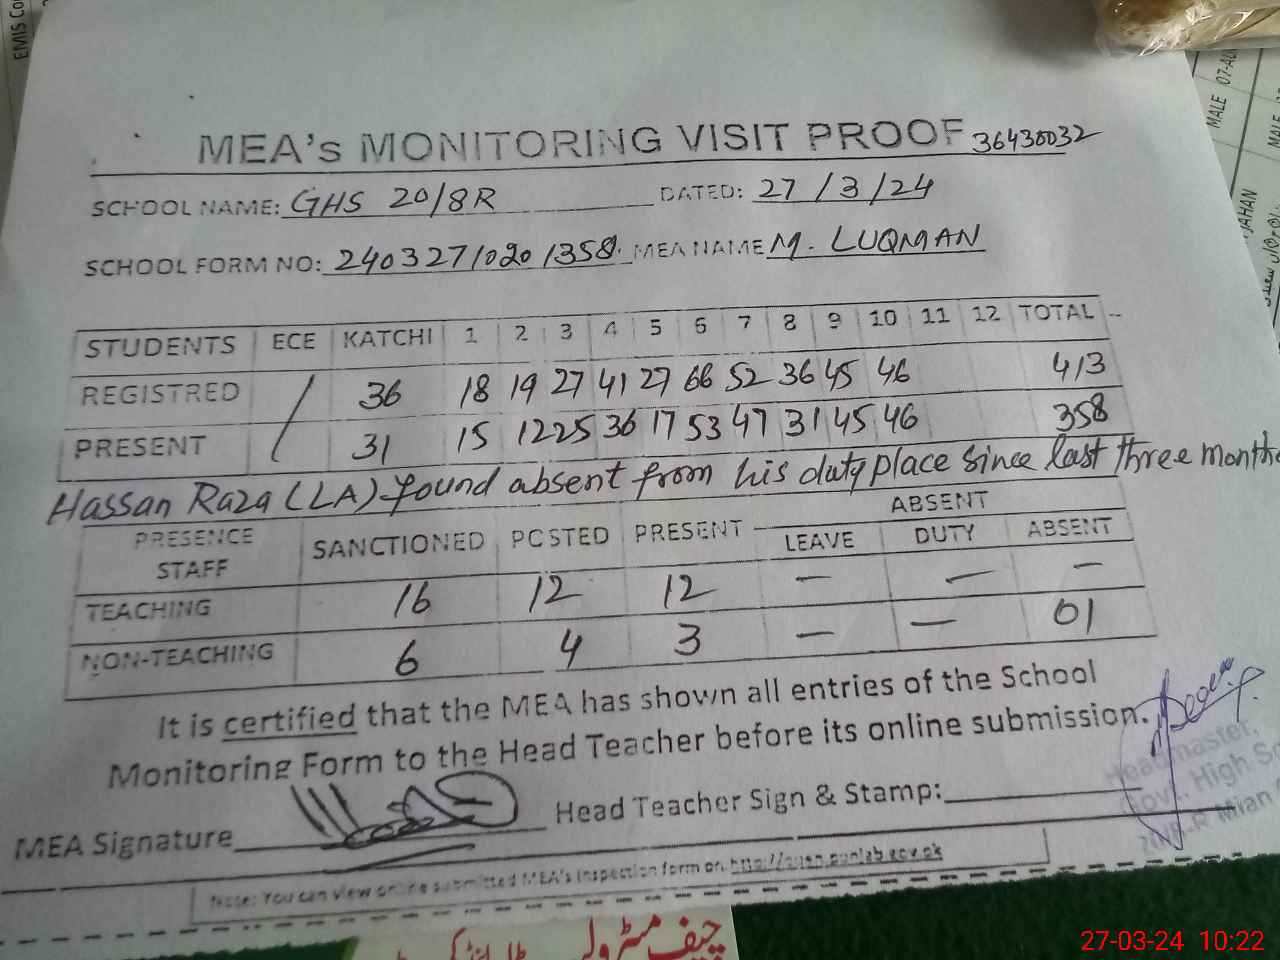 EMIS Co
MALE 07-AU
MALE
JAHAN
MEA's MONITORING VISIT PROOF 36430032
SCHOOL NAME: GHS 20/8R DATED: 27/3/24
SCHOOL FORM NO: 24032710201358. MEA NAME M. LUQMAN
STUDENTS ECE KATCHI 1 2 3 4 5 6 7 8 9 10 11 12 TOTAL
REGISTRED / 36 18 19 27 41 27 66 52 36 45 46 413
PRESENT 31 15 12 25 36 17 53 47 31 45 46 358
Hassan Raza (LA) found absent from his duty place since last three months
PRESENCE STAFF SANCTIONED POSTED PRESENT ABSENT
LEAVE DUTY ABSENT
TEACHING 16 12 12 — — —
NON-TEACHING 6 4 3 — — 01
It is certified that the MEA has shown all entries of the School
Monitoring Form to the Head Teacher before its online submission.
MEA Signature Head Teacher Sign & Stamp:
Headmaster,
Govt. High Sc
20/8-R Mian
Note: You can view online submitted MEA's Inspection form on http://open.punjab.gov.pk
چیف منٹرول
27-03-24 10:22